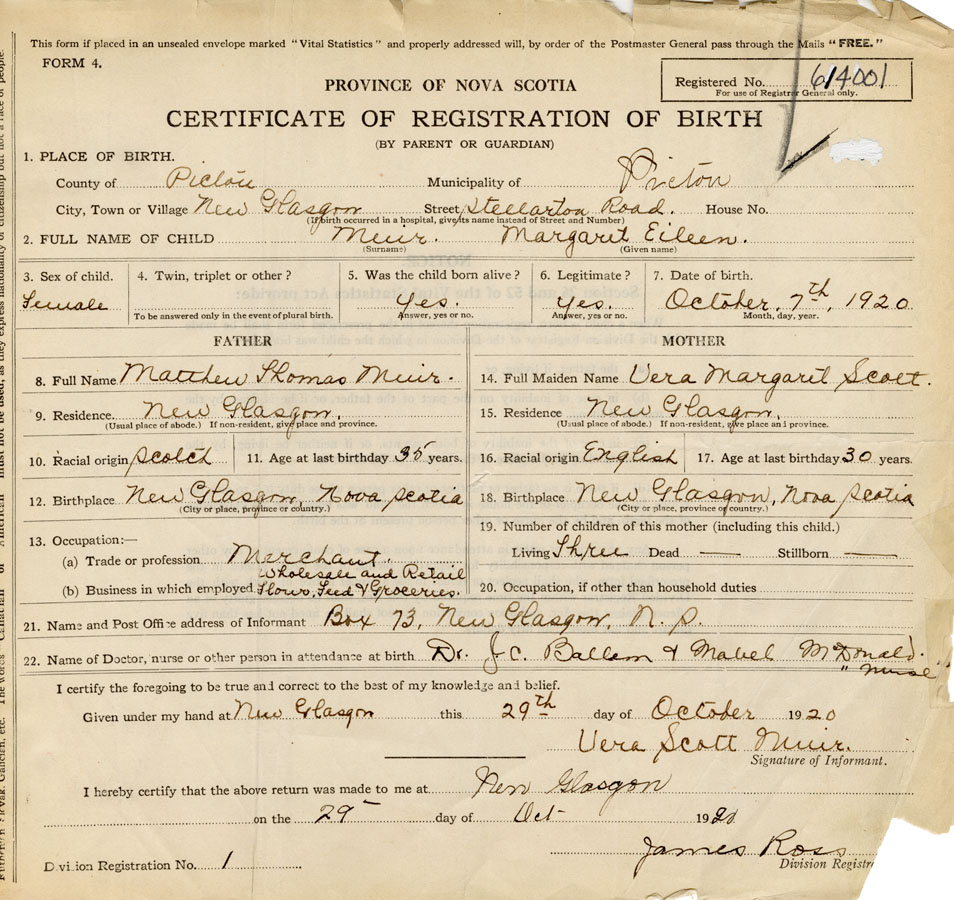 This form if placed in an unsealed envelope marked "Vital Statistics" and properly addressed will, by order of the Postmaster General pass through the Mails "FREE."
FORM 4.
PROVINCE OF NOVA SCOTIA
Registered No. 614001
For use of Registrar General only.
CERTIFICATE OF REGISTRATION OF BIRTH
(BY PARENT OR GUARDIAN)
1. PLACE OF BIRTH.
County of Pictou Municipality of Pictou
City, Town or Village New Glasgow Street Stellarton Road. House No.
(If birth occurred in a hospital, give its name instead of Street and Number)
2. FULL NAME OF CHILD Muir. Margaret Eileen.
(Surname) (Given name)
3. Sex of child. 4. Twin, triplet or other? 5. Was the child born alive? 6. Legitimate? 7. Date of birth.
Female Yes. Yes. October, 7th, 1920
To be answered only in the event of plural birth. Answer, yes or no. Answer, yes or no. Month, day, year.
FATHER MOTHER
8. Full Name Matthew Thomas Muir. 14. Full Maiden Name Vera Margaret Scott.
9. Residence. New Glasgow. 15. Residence New Glasgow.
(Usual place of abode.) If non-resident, give place and province. (Usual place of abode.) If non-resident, give place and province.
10. Racial origin Scotch 11. Age at last birthday 35 years. 16. Racial origin English 17. Age at last birthday 30 years.
12. Birthplace New Glasgow, Nova Scotia 18. Birthplace New Glasgow, Nova Scotia
(City or place, province or country.) (City or place, province or country.)
13. Occupation:— 19. Number of children of this mother (including this child.)
(a) Trade or profession Merchant. Living Three Dead — Stillborn —
Wholesale and Retail
(b) Business in which employed Flour, Feed & Groceries. 20. Occupation, if other than household duties
21. Name and Post Office address of Informant Box 73, New Glasgow, N.S.
22. Name of Doctor, nurse or other person in attendance at birth Dr. J.C. Ballem & Mabel McDonald.
" nurse
I certify the foregoing to be true and correct to the best of my knowledge and belief.
Given under my hand at New Glasgow this 29th day of October 1920
Vera Scott Muir.
Signature of Informant.
I hereby certify that the above return was made to me at New Glasgow
on the 29 day of Oct 1920
James Ross
Division Registra
Division Registration No. 1